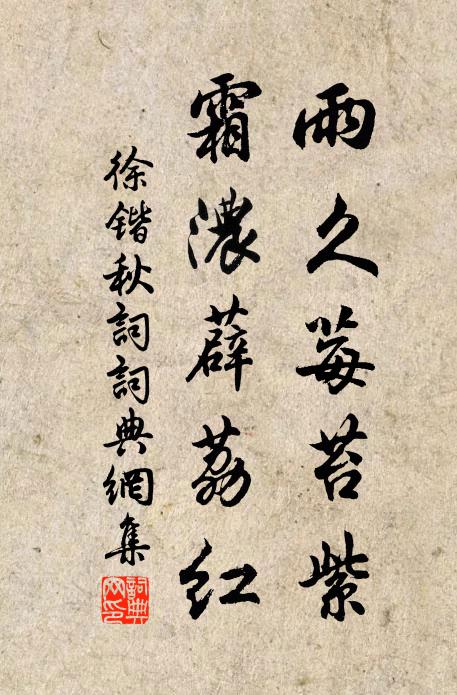 雨久莓苔紫
霜濃薜荔紅
徐鍇秋詞詞典網集
詞典
网印